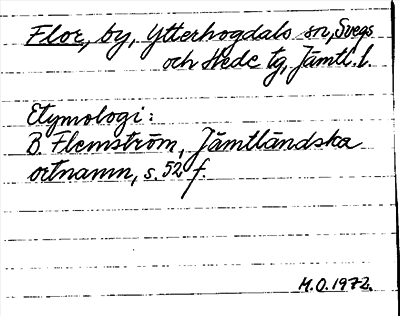 Flor, by, Ytterhogdals sn, Svegs
och Hede tg, Jämtl. l.
Etymologi:
B. Flemström, Jämtländska
ortnamn, s. 52 f.
M.O. 1972.